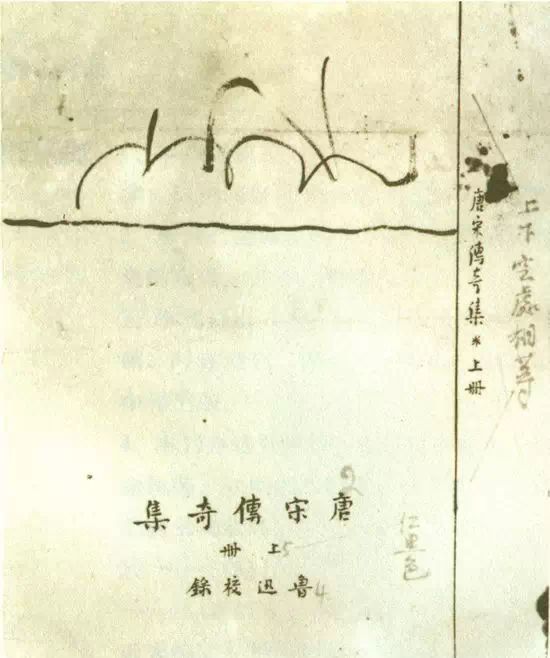 上下空處相等
唐宋傳奇集*上冊
2
唐宋傳奇集
5上冊
4魯迅校錄